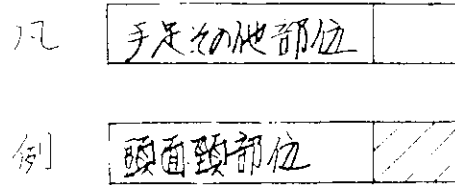 凡 手足その他部位
例 頭面頸部位